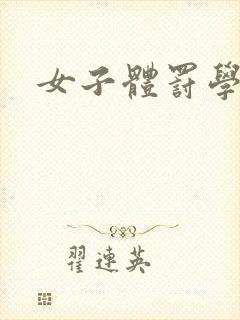 女子體罸學
翟連英